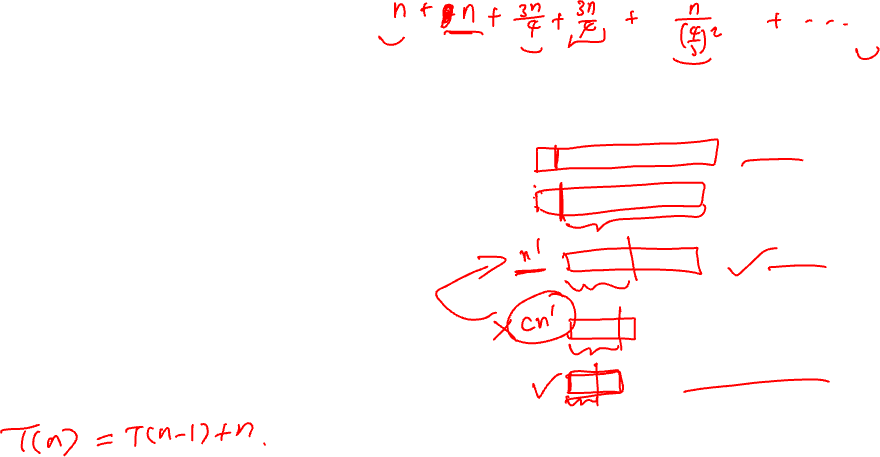 n + n + 3n/4 + 3n/4 + n/(4/3)^2 + ...
n'
cn'
T(n) = T(n-1)+n.